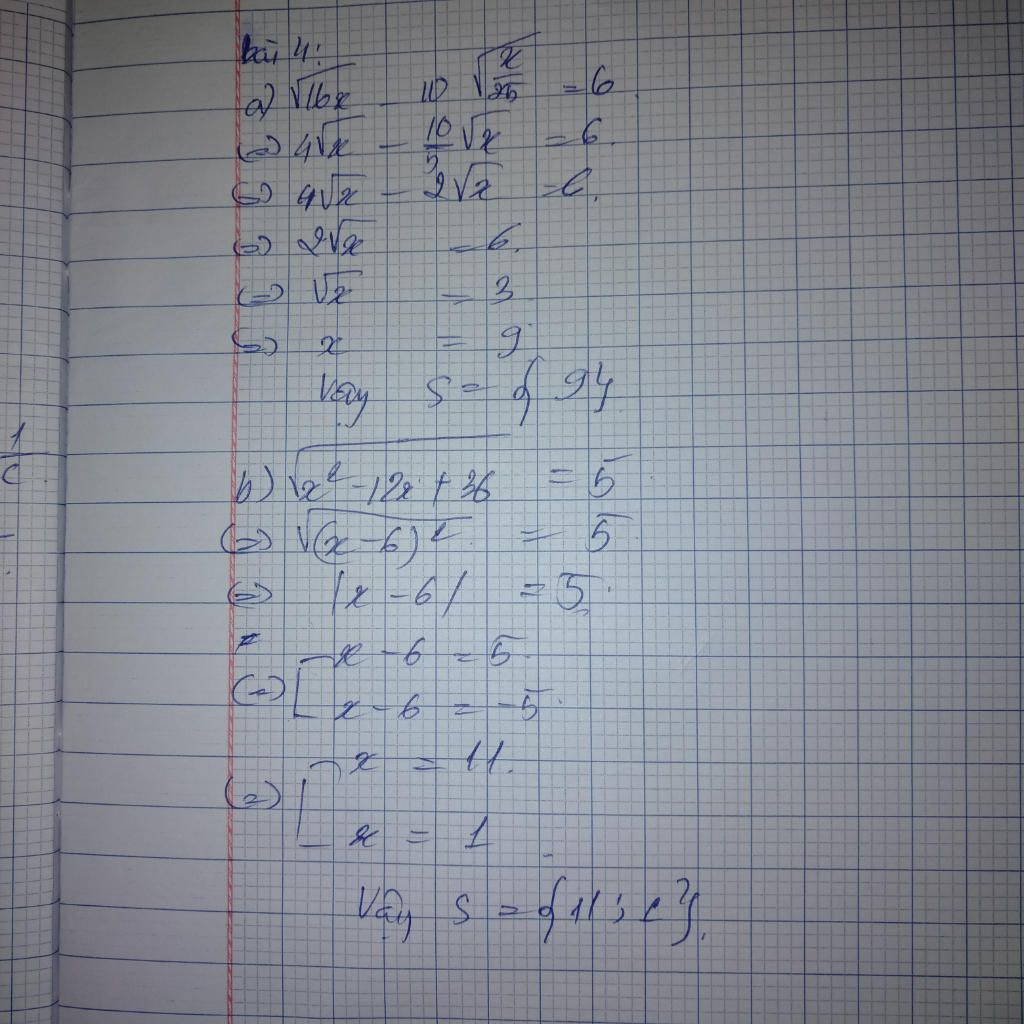 bài 4:
a) √16x - 10 √x/25 = 6
(=) 4√x - 10/5 √x = 6.
(=) 4√x - 2√x = 6.
(=) 2√x = 6.
(=) √x = 3
(=) x = 9
Vậy S = { 9 }
b) √x² - 12x + 36 = 5
(=) √(x - 6)² = 5
(=) |x - 6| = 5.
(=) [ x - 6 = 5.
x - 6 = -5.
(=) [ x = 11.
x = 1
Vậy S = { 11 ; 1 }.